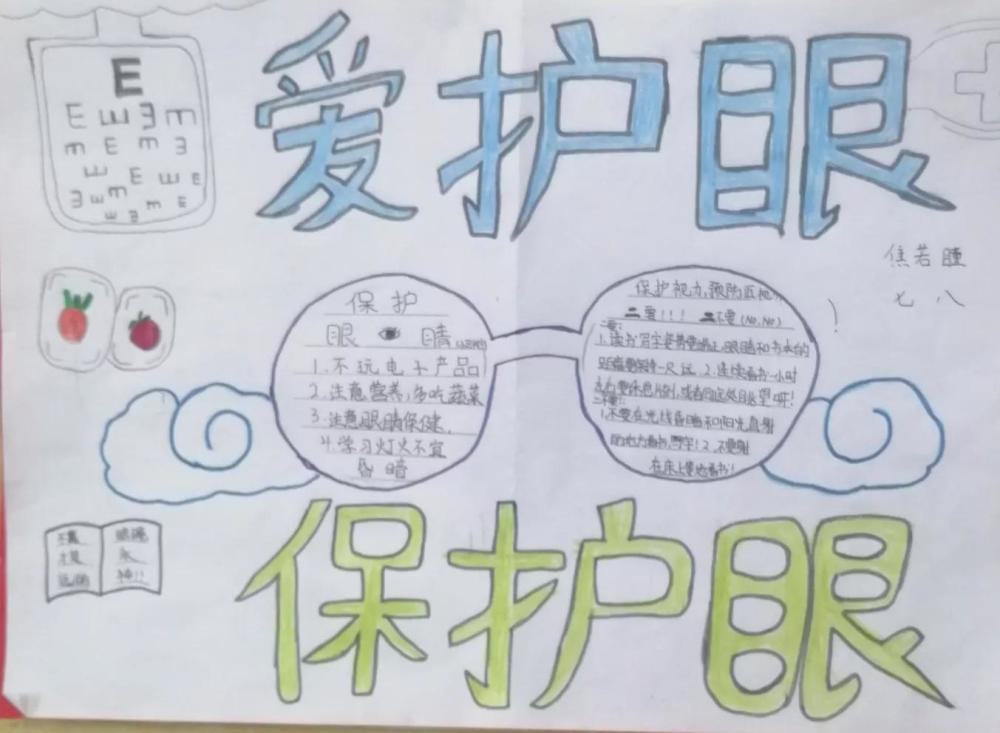 爱护眼
E
E Ш Ǝ m
m E m Ǝ
ш E ш E
Ǝ ш m m E
ш Ǝ
焦若瞳
七 八
保护
眼 睛
1.不玩电子产品
2.注意营养,多吃蔬菜
3.注意眼睛保健.
4.学习灯火不宜
昏暗
保护视力,预防近视
二要!!! 不要(No,No)
一要:
1.读书写字姿势要端正,眼睛和书本的
距离要保持一尺远 2.连续看书一小时
左右要休息片刻,或者向远处眺望呀!
二不要:
1.不要在光线昏暗和阳光直射
的地方看书,写字!2.不要躺
在床上看书!
保护眼